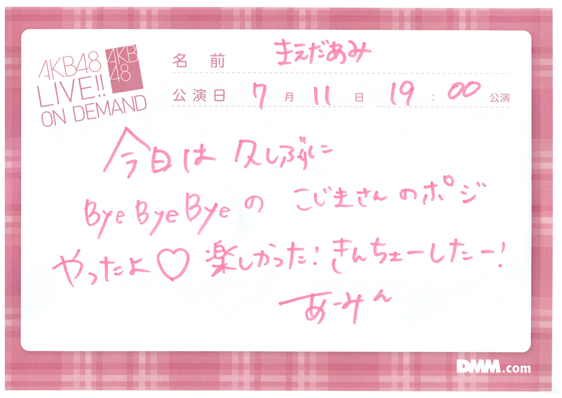 AKB48
LIVE!!
ON DEMAND
AKB
48
名 前 まえだあみ
公演日 7 月 11 日 19 : 00 公演
今日は 久しぶりに
Bye Bye Byeの こじまさんのポジ
やったよ♡ 楽しかった! きんちょーしたー!
あーみん
DMM.com